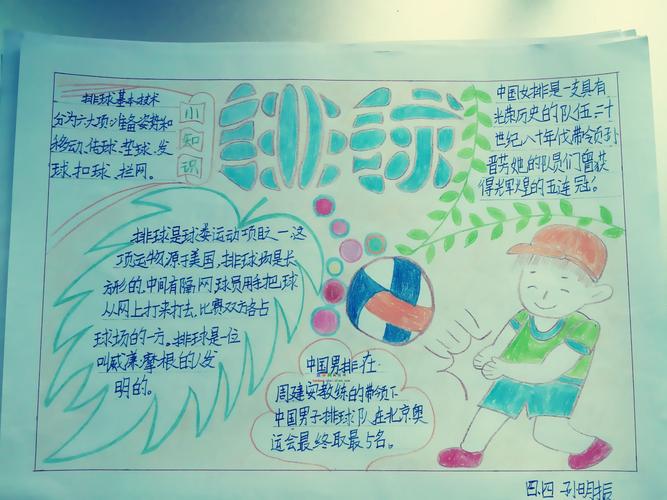 排球
小知识
排球基本技术
分为六大项:准备姿势和
移动、传球、垫球、发
球、扣球、拦网。
中国女排是一支具有
光荣历史的队伍二十
世纪八十年代带领孙
晋芳她的队员们曾获
得光辉煌的五连冠。
排球是球类运动项目之一这
项运动源于美国,排球场是长
方形的,中间有隔网球员用手把球
从网上打来打去,比赛双方各占
球场的一方。排球是一位
叫威廉摩根的人发
明的。
中国男排在
周建安教练的带领下
中国男子排球队在北京奥
运会最终取最5名。
四.四 孙明振